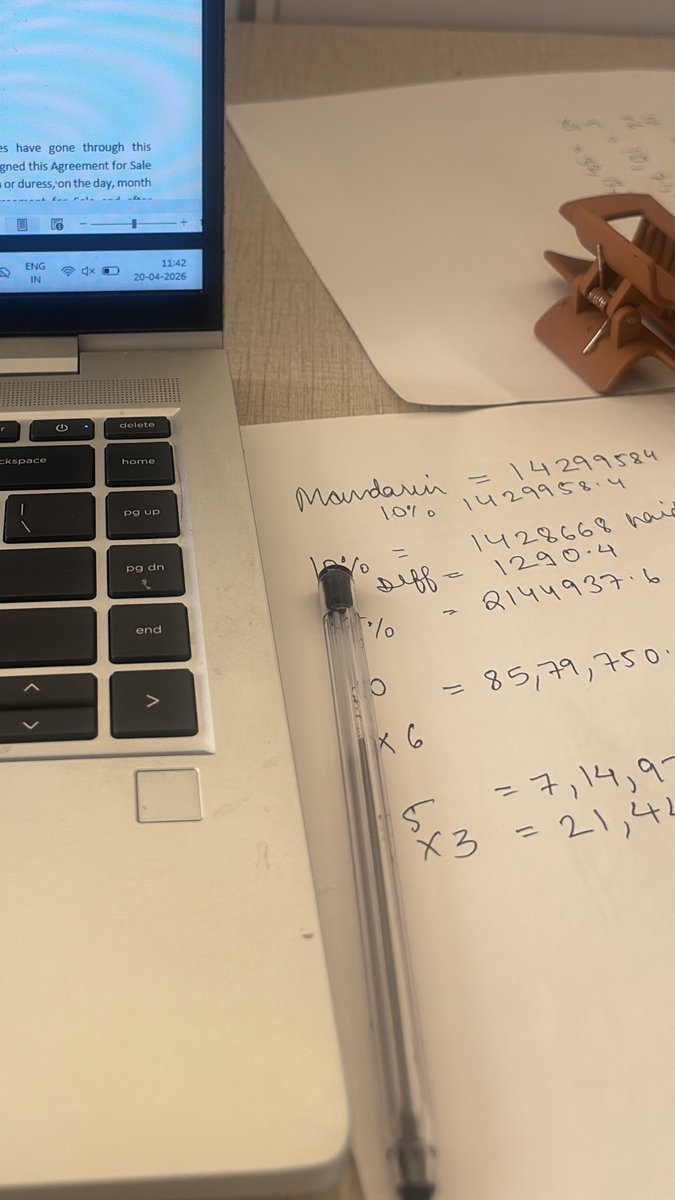 es have gone through this
gned this Agreement for Sale
or duress, on the day, month
ENG
IN
11:42
20-04-2026
delete
ckspace
home
pg up
pg dn
end
Mandarin = 14299584
10% 1429958.4
10% = 1428668
Diff = 1290.4
% = 2144937.6
0 = 85,79,750.
x 6
5 = 7,14,97
x 3 = 21,44